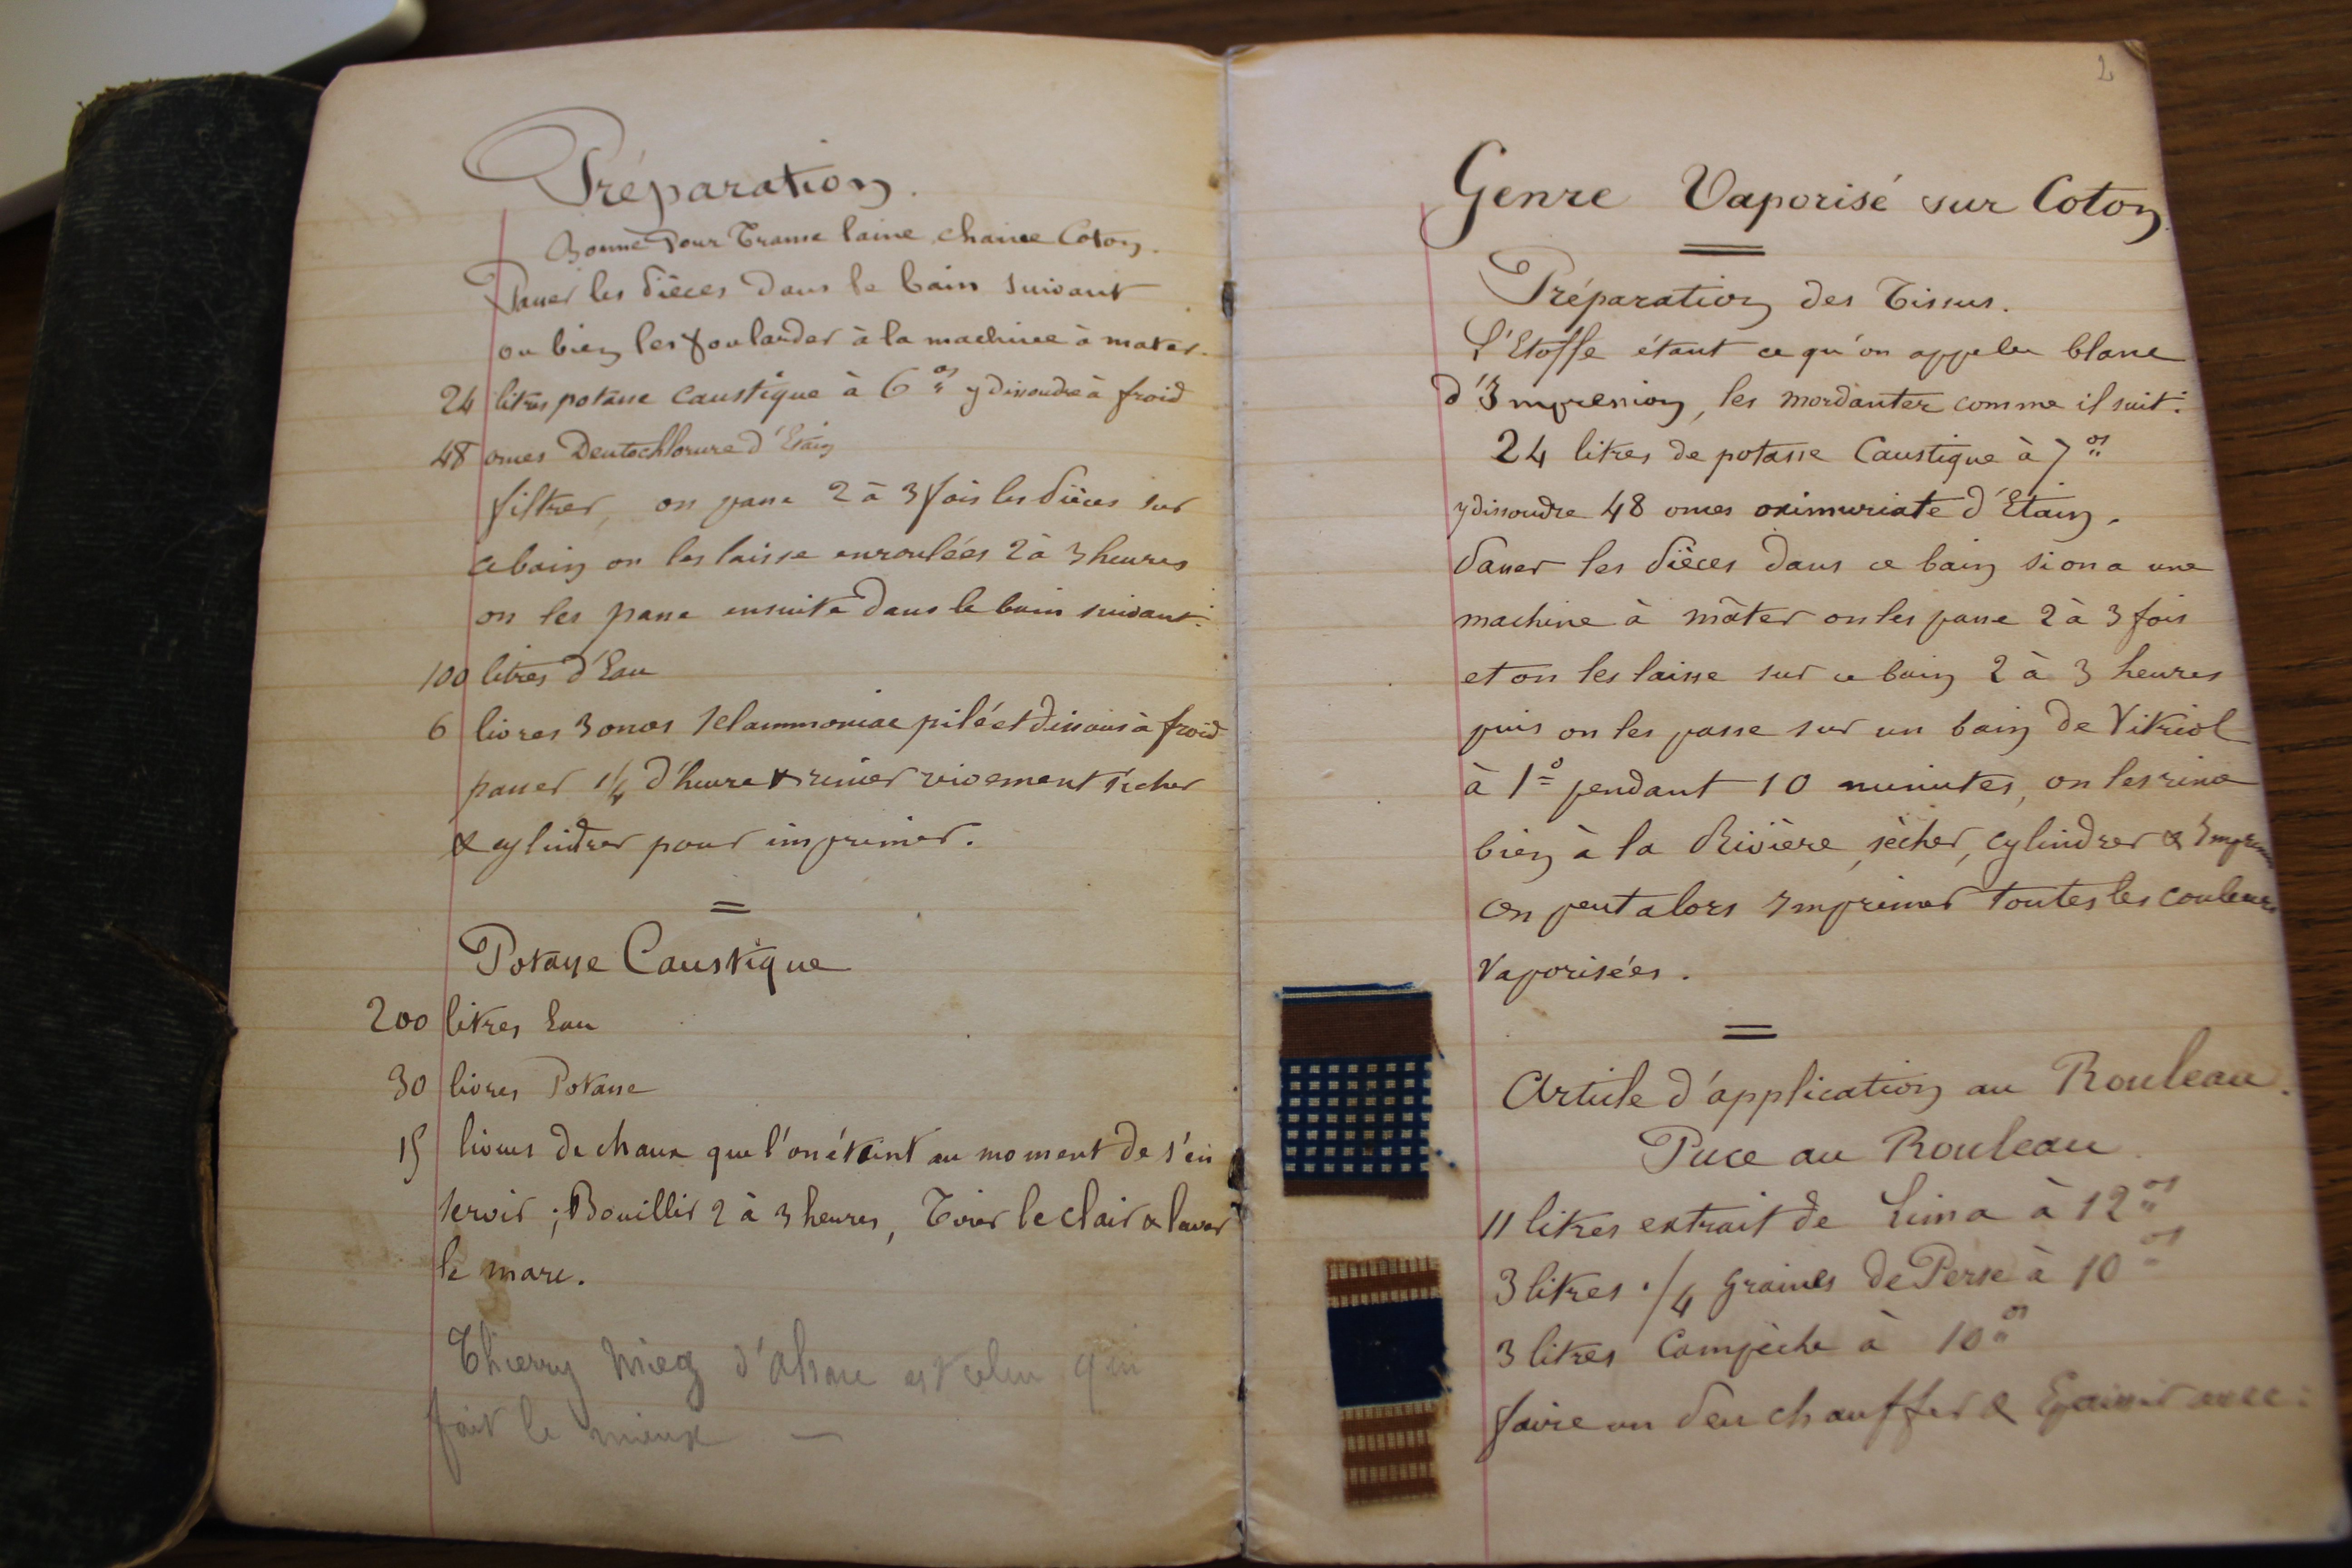 Préparation.
Bonne Pour Trame laine, chaine Coton.
Passer les Pièces dans le bain suivant
ou bien les foularder à la machine à mater.
24 litres potasse caustique à 6os y dissoudre à froid
48 onces Deutochlorure d'Etain
filtrer, on passe 2 à 3 fois les Pièces sur
ce bain on les laisse enroulées 2 à 3 heures
on les passe ensuite dans le bain suivant:
100 litres d'Eau
6 livres 3 onces Sel ammoniac pilé et dissous à froid
passer 1/4 d'heure & rincer vivement sécher
& cylindrer pour imprimer.
Potasse Caustique
200 litres Eau
30 livres Potasse
15 livres de chaux que l'on éteint au moment de s'en
servir; Bouillir 2 à 3 heures, Tirer le clair & laver
le marc.
Thierry Mieg d'alsace est celui qui
fait le mieux —
2
Genre Vaporisé sur Coton.
Préparation des Tissus.
L'Etoffe étant ce qu'on appelle blanc
d'Impression, les mordanter comme il suit:
24 litres de potasse Caustique à 7os
y dissoudre 48 onces oximuriate d'Etain.
Passer les Pièces dans ce bain si on a une
machine à màter on les passe 2 à 3 fois
et on les laisse sur ce bain 2 à 3 heures
puis on les passe sur un bain de Vitriol
à 1o pendant 10 minutes, on les rince
bien à la Rivière, sècher, cylindrer &
On peut alors Imprimer toutes les couleurs
Vaporisées.
Article d'application au Rouleau.
Puce au Rouleau
11 litres extrait de Lima à 12os
3 litres 1/4 graines de Perse à 10os
3 litres Campèche à 10os
faire un Peu chauffer & Epaissir avec: